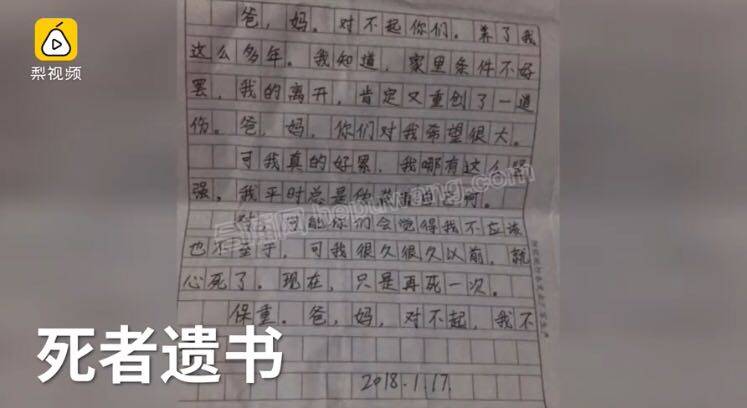 梨视频
爸，妈。对不起你们。养了我
这么多年。我知道，家里条件不好
罢，我的离开，肯定又重创了一道
伤。爸，妈，你们对我希望很大。
可我真的好累，我哪有这么坚
强。我平时总是
可能你们会觉得我不应该
也不至于，可我很久很久以前，就
心死了。现在，只是再死一次。
保重。爸，妈，对不起，我不
2018.1.17.
死者遗书